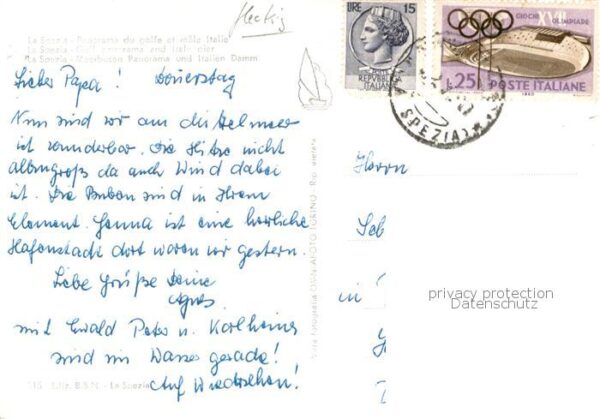 La Spezia - Panorama del golfo e molo Italia
La Spezia - Golf panorama and Italy pier
La Spezia - Meerbusen Panorama und Italien Damm
LIRE 15
REPUBBLICA
ITALIANA
GIOCHI OLIMPIADE
XVII
L.25
POSTE ITALIANE
1960
SPEZIA
Lieber Papa! Donnerstag
Nun sind wir am Mittelmeer
ist wunderbar. Die Hitze nicht
allzugroß da auch Wind dabei
ist. Die Buben sind in Ihrem
Element. Genua ist eine herrliche
Hafenstadt dort waren wir gestern.
Liebe Grüße Deine
Agnes
mit Ewald Peter u. Karlheinz
sind im Wasser gerade!
Auf Wiedersehen!
Herrn
in
privacy protection
Datenschutz
Ediz. B.S.N. - La Spezia